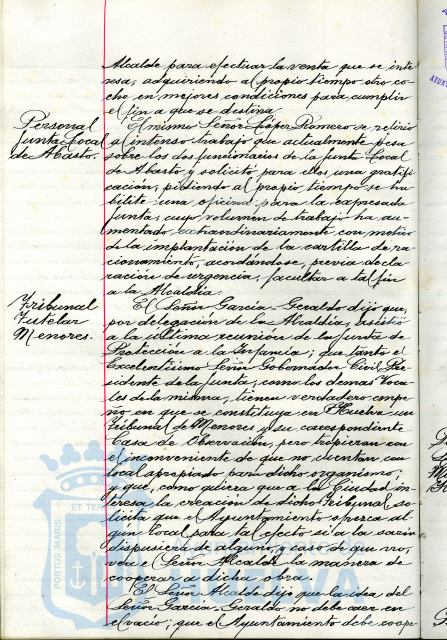 Alcalde para efectuar la venta que se inte-
resa, adquiriendo al propio tiempo otro co-
che en mejores condiciones para cumplir
el fin a que se destina.
Personal
Junta Local
de Abasto.
El mismo Señor López Romero se refirió
al intenso trabajo que actualmente pesa
sobre los dos funcionarios de la Junta Local
de Abasto y solicitó para ellos una gratifi-
cación, pidiendo al propio tiempo se ha-
bilite una oficina para la expresada
Junta, cuyo volumen de trabajo ha au-
mentado extraordinariamente con motivo
de la implantación de la cartilla de ra-
cionamiento, acordándose, previa decla-
ración de urgencia, facultar a tal fin
a la Alcaldía.
Tribunal
Tutelar
Menores.
El Señor García-Geraldo dijo que,
por delegación de la Alcaldía, asistió
a la última reunión de la Junta de
Protección a la Infancia; que tanto el
Excelentísimo Señor Gobernador Civil, Pre-
sidente de la Junta, como los demás Voca-
les de la misma, tienen verdadero empe-
ño en que se constituya en Huelva un
Tribunal de Menores y su correspondiente
Casa de Observación, pero tropiezan con
el inconveniente de que no cuentan con
local apropiado para dicho organismo;
y que, como quiera que a la Ciudad in-
teresa la creación de dicho Tribunal, so-
licita que el Ayuntamiento ofrezca al-
gún local para tal efecto si a la sazón
dispusiera de alguno, y caso de que no,
vea el Señor Alcalde la manera de
cooperar a dicha obra.
El Señor Alcalde dijo que la idea del
Señor García-Geraldo no debe caer en
el vacío; que el Ayuntamiento debe coope-
PORTUS MARIS ET TER